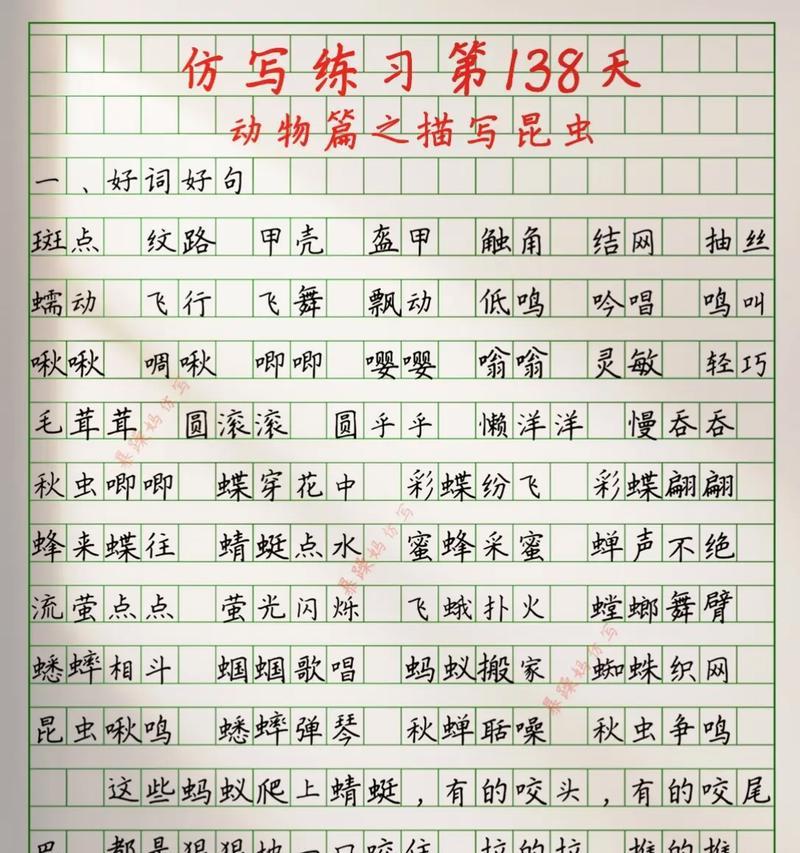 仿写练习第138天
动物篇之描写昆虫
一、好词好句
斑点 纹路 甲壳 盔甲 触角 结网 抽丝
蠕动 飞行 飞舞 飘动 低鸣 吟唱 鸣叫
啾啾 啁啾 唧唧 嘤嘤 嗡嗡 灵敏 轻巧
毛茸茸 圆滚滚 圆乎乎 懒洋洋 慢吞吞
秋虫唧唧 蝶穿花中 彩蝶纷飞 彩蝶翩翩
蜂来蝶往 蜻蜓点水 蜜蜂采蜜 蝉声不绝
流萤点点 萤光闪烁 飞蛾扑火 螳螂舞臂
蟋蟀相斗 蝈蝈歌唱 蚂蚁搬家 蜘蛛织网
昆虫啾鸣 蟋蟀弹琴 秋蝉聒噪 秋虫争鸣
这些蚂蚁爬上蜻蜓，有的咬头，有的咬尾
巴，都是狠狠地一口咬住，拉的拉，推的推
暴躁妈仿写
暴躁妈仿写
暴躁妈仿写